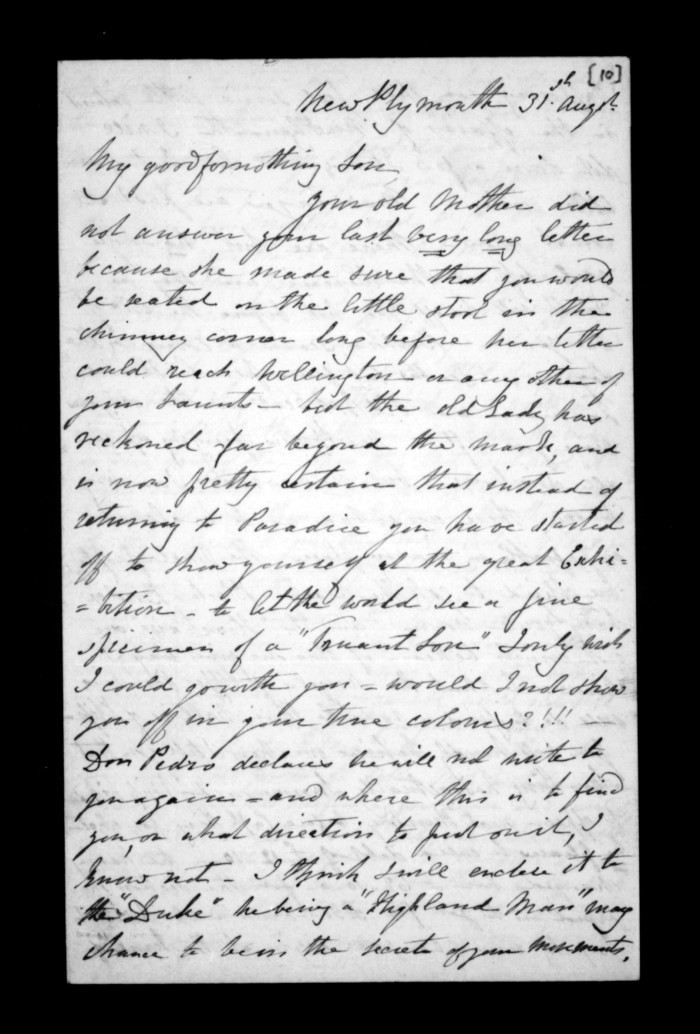 [10]
New Plymouth 31st Augst.
My goodfornothing Son
Your old Mother did
not answer your last very long letter
because she made sure that you would
be seated on the little stool in the
chimney corner long before her letter
could reach Wellington or any other of
your haunts - but the old Lady has
reckoned far beyond the mark, and
is now pretty certain that instead of
returning to Paradise you have started
off to show yourself at the great Exhi=
=bition - to let the world see a fine
specimen of a "Truant Son" I only wish
I could go with you - would I not show
you off in your true colours?!!! -
Don Pedro declares he will not write to
you again - and where this is to find
you, or what direction to put on it, I
know not - I think I will enclose it to
the "Duke" he being a "Highland Man" may
chance to be in the secrets of your movements.